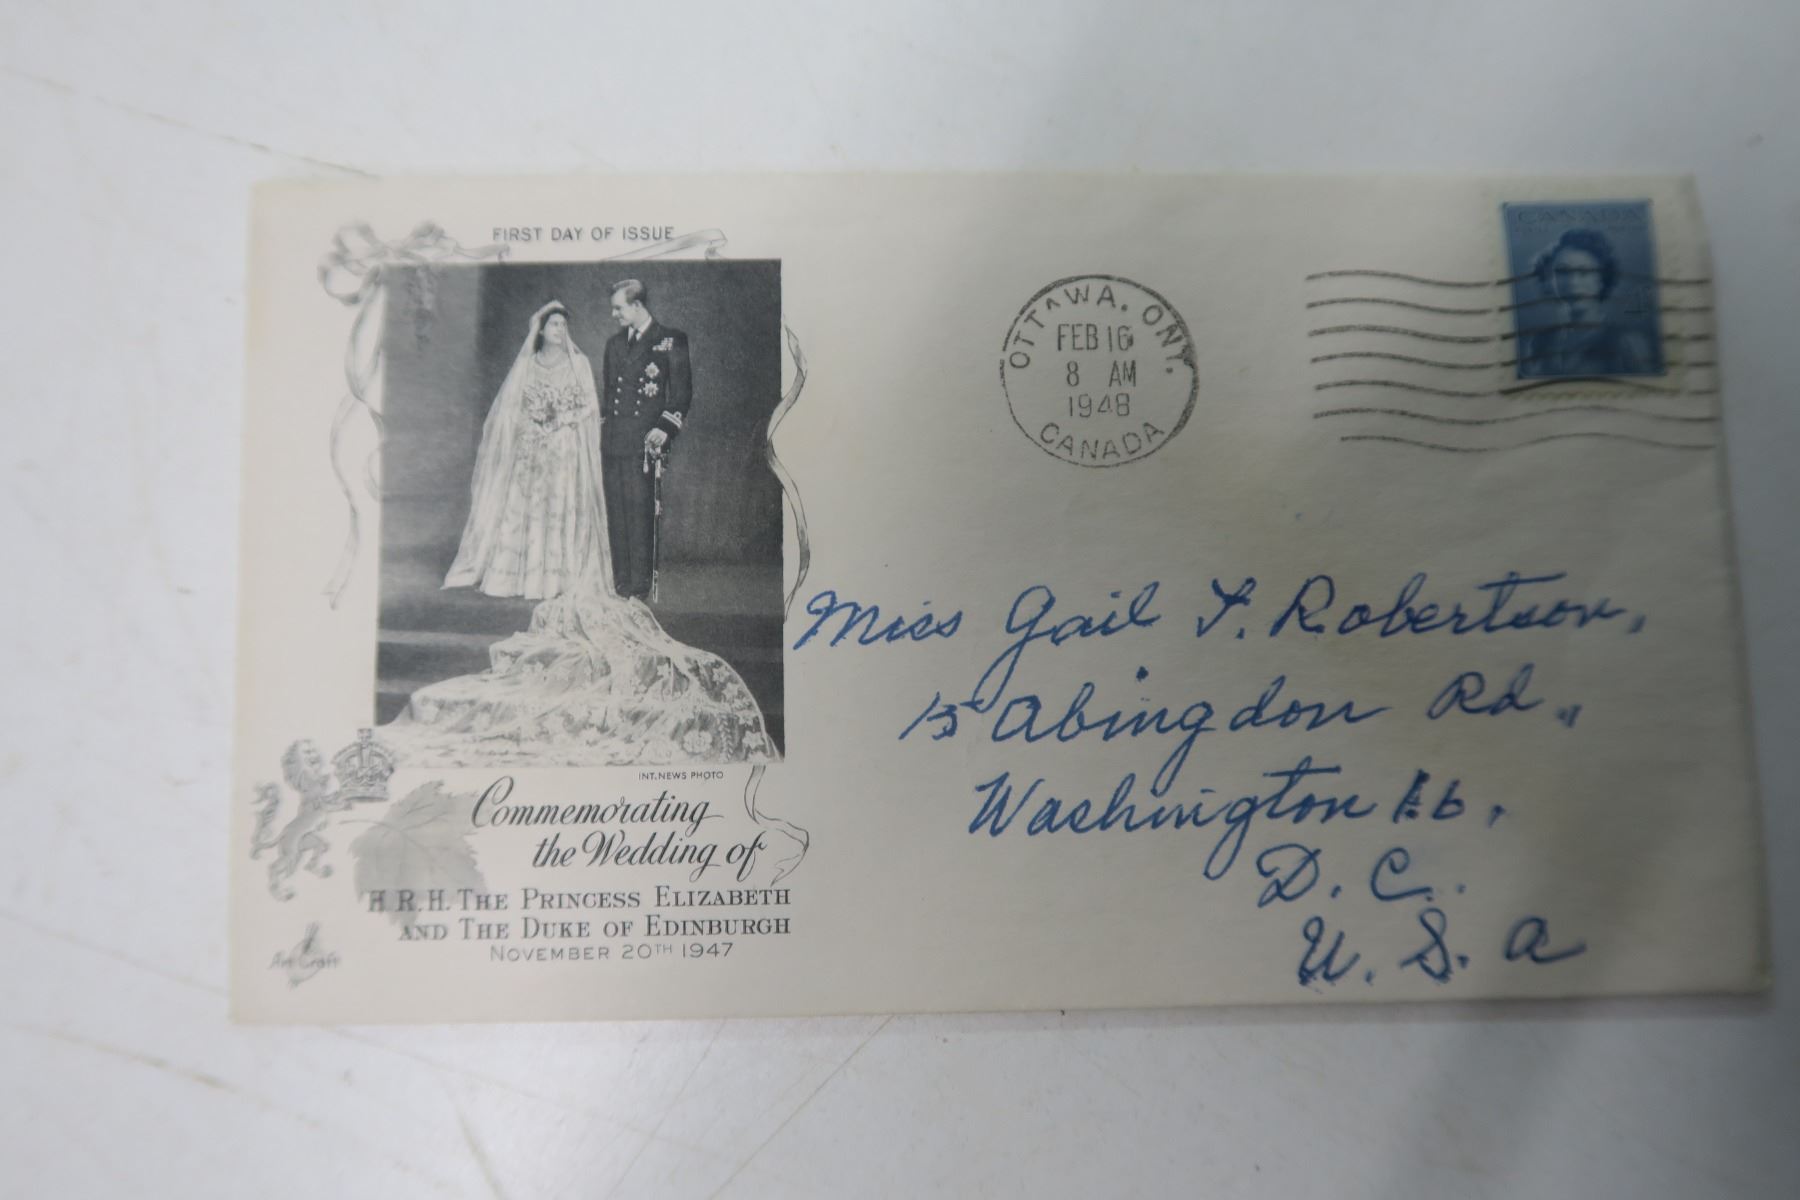 FIRST DAY OF ISSUE
CANADA
OTTAWA. ONT.
FEB 16
8 AM
1948
CANADA
INT. NEWS PHOTO
Commemorating
the Wedding of
H.R.H. THE PRINCESS ELIZABETH
AND THE DUKE OF EDINBURGH
NOVEMBER 20TH 1947
Art Craft
Miss Gail Y. Robertson,
15 Abingdon Rd.,
Washington 16.
D. C.
U. S. A